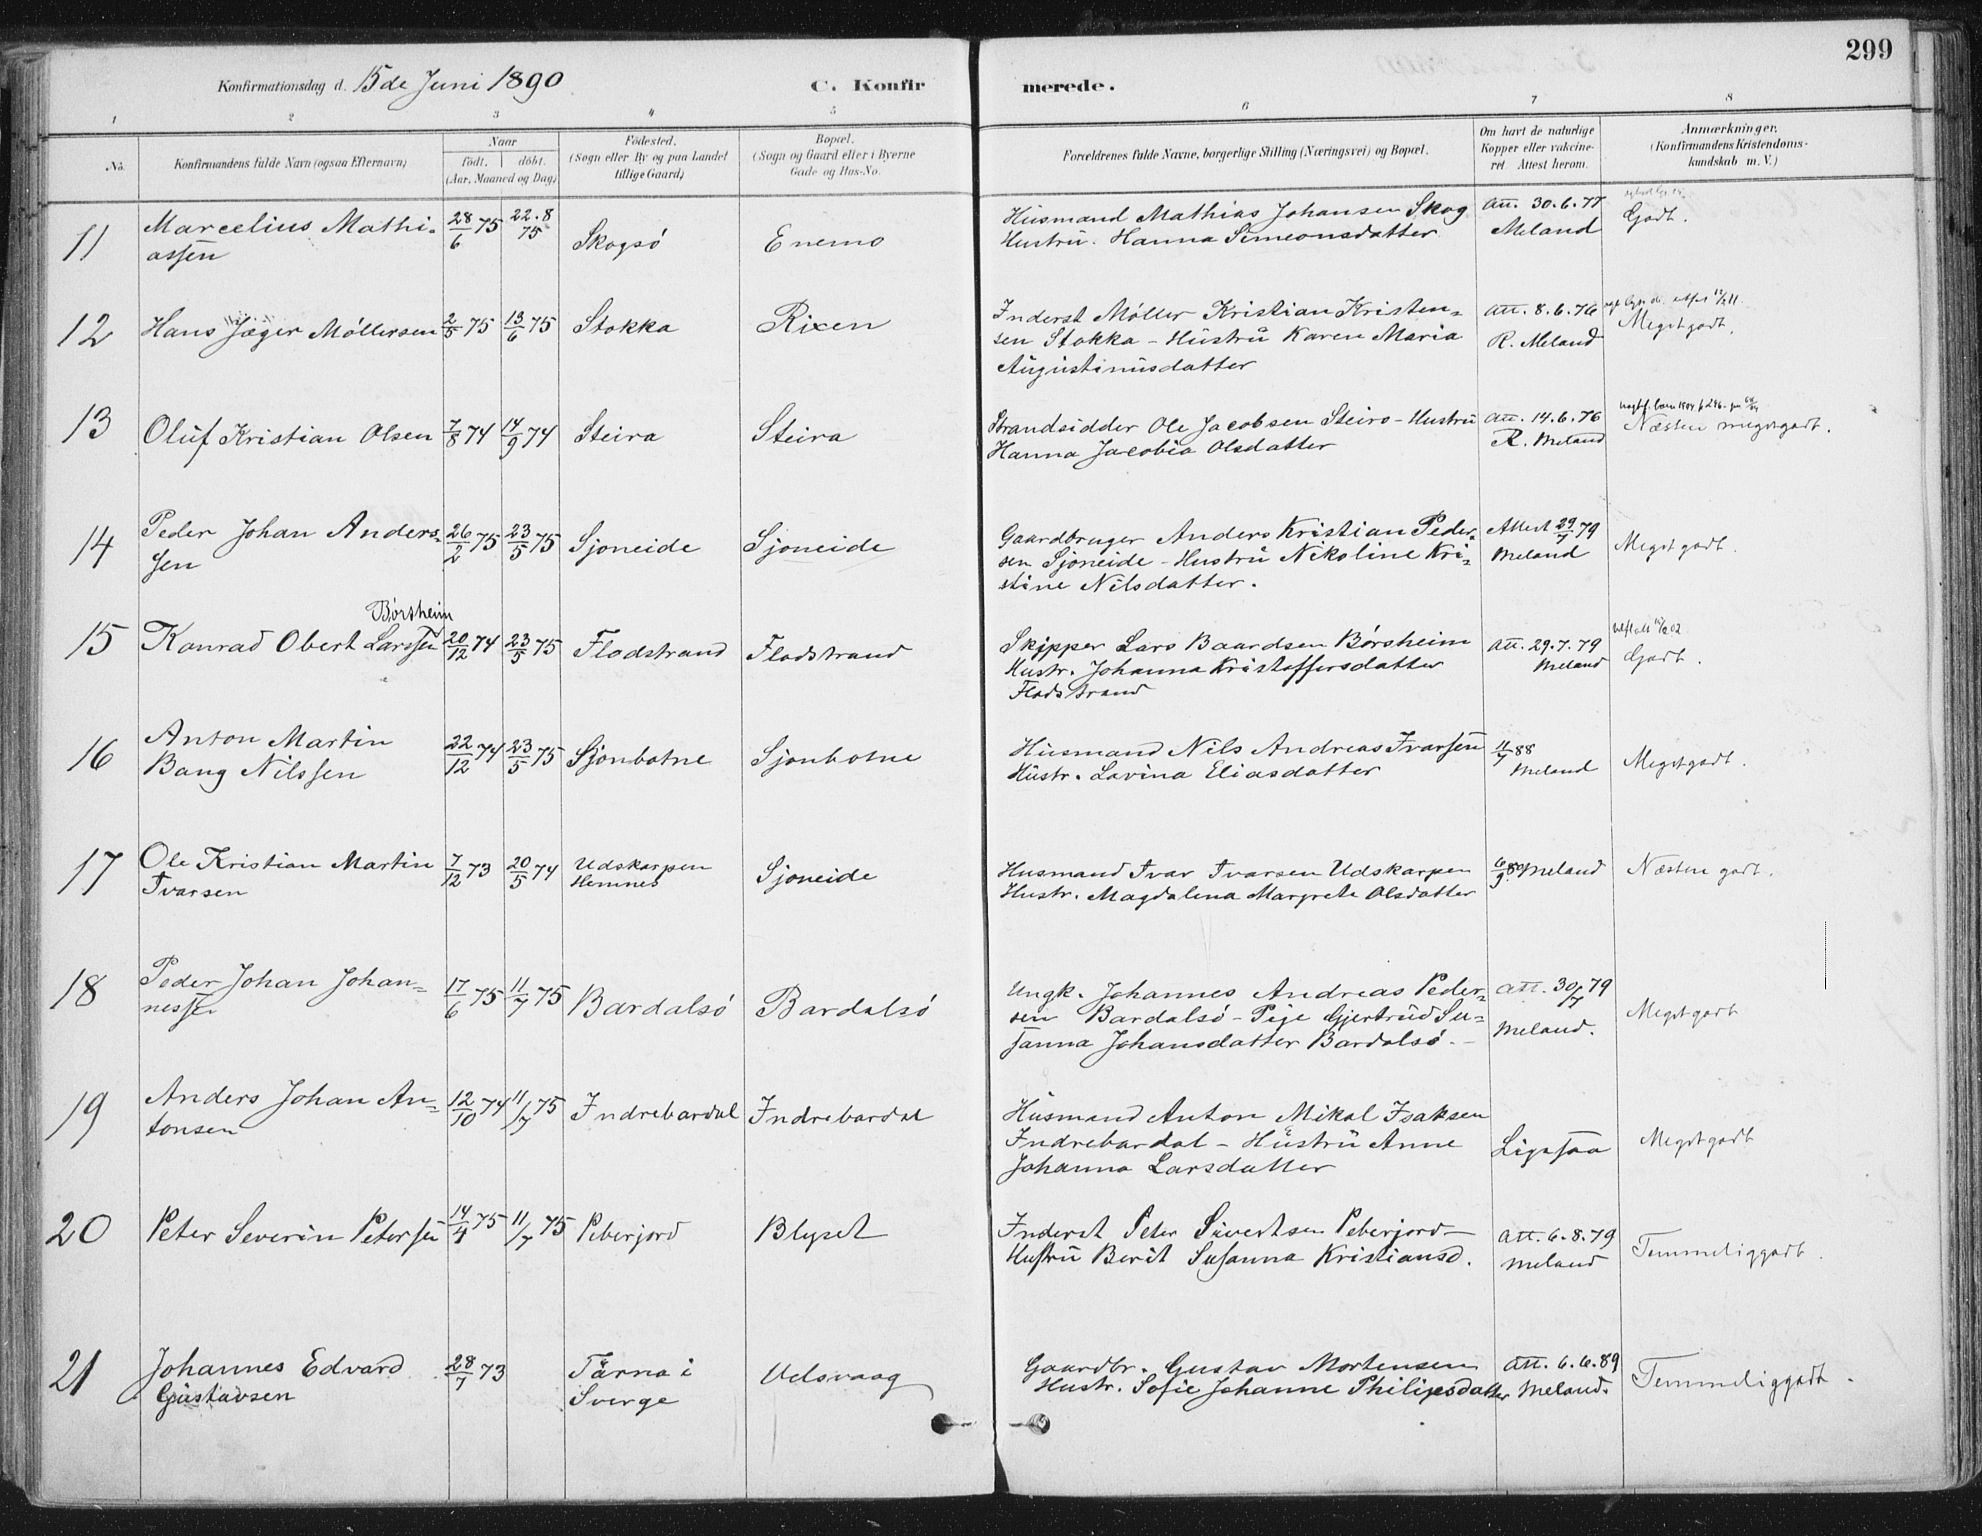 299
Konfirmationsdag d. 15de Juni 1890
C. Konfirmerede.
1 2 3 4 5 6 7 8
No.
Konfirmandens fulde Navn (ogsaa Efternavn)
Naar
født. døbt.
(Aar, Maaned og Dag)
Fødested.
(Sogn eller By og paa Landet
tillige Gaard)
Bopæl.
(Sogn og Gaard eller i Byerne
Gade og Hus-No.
Forældrenes fulde Navne, borgerlige Stilling (Næringsvei) og Bopæl.
Om havt de naturlige
Kopper eller vakcine-
ret Attest herom.
Anmærkninger.
(Konfirmandens Kristendoms-
kundskab m. V.)
11 Marcelius Mathi-
assen
28/6 75 22.8 75 Skogsø Enemo
Husmand Mathias Johansen Skog
Hustru. Hanna Simeonsdatter
Att. 30.6.77
Meland
Godt.
12 Hans Jæger Møllersen 2/5 75 13/6 75 Stokka Rixen
Inderst Møller Kristian Kristen-
sen Stokka - Hustru Karen Maria
Augustinusdatter
Att. 8.6.76
R. Meland
Megetgodt.
13 Oluf Kristian Olsen 7/8 74 14/9 74 Steira Steira
Strandsidder Ole Jacobsen Steiro - Hustru
Hanna Jacobia Olsdatter
Att. 14.6.76
R. Meland
Næsten megetgodt.
14 Peder Johan Anders-
sen
26/2 75 23/5 75 Sjoneide Sjoneide
Gaardbruger Anders Kristian Peder-
sen Sjoneide - Hustru Nikoline Kri-
stine Nilsdatter.
Attest 29/7 79
Meland
Meget godt.
15 Konrad Obert Larssen
Børsheim
20/12 74 23/5 75 Flodstrand Flodstrand
Skipper Lars Baardsen Børsheim
Hustr. Johanna Kristoffersdatter
Flodstrand
Att. 29.7.79
Meland
Godt.
16 Anton Martin
Bang Nilssen
22/12 74 23/5 75 Sjonbotne Sjonbotne
Husmand Nils Andreas Ivarsen
Hustr. Lovina Eliasdatter
11/7 88
Meland
Megetgodt.
17 Ole Kristian Martin
Ivarsen
7/12 73 20/5 74 Udskarpen
Hemnes
Sjoneide
Husmand Ivar Ivarsen Udskarpen
Hustr. Magdalena Margrete Olsdatter
Meland
Næsten godt.
18 Peder Johan Johan-
nessen
17/6 75 11/7 75 Bardalsø Bardalsø
Ungk. Johannes Andreas Peder-
sen Bardalsø - Pige Gjertrud Su-
sanna Johansdatter Bardalsø.
Att. 30/7 79
Meland.
Megetgodt
19 Anders Johan An-
tonsen
12/10 74 11/7 75 Indrebardal Indrebardal
Husmand Anton Mikal Isaksen
Indrebardal - Hustru Anne
Johanna Larsdatter
Ligesaa
Megetgodt
20 Peter Severin Petersen 14/4 75 11/7 75 Peberjord Blyset
Inderst Peter Sivertsen Peberjord -
Hustru Berit Susanna Kristiansd.
Att. 6.8.79
Meland
Temmeliggodt.
21 Johannes Edvard
Gustavsen
28/7 73 Tärna i
Sverge
Velsvaag
Gaardbr. Gustav Mortensen
Hustr. Sofie Johanne Philipsdatter
Att. 6.6.89
Meland.
Temmeliggodt.